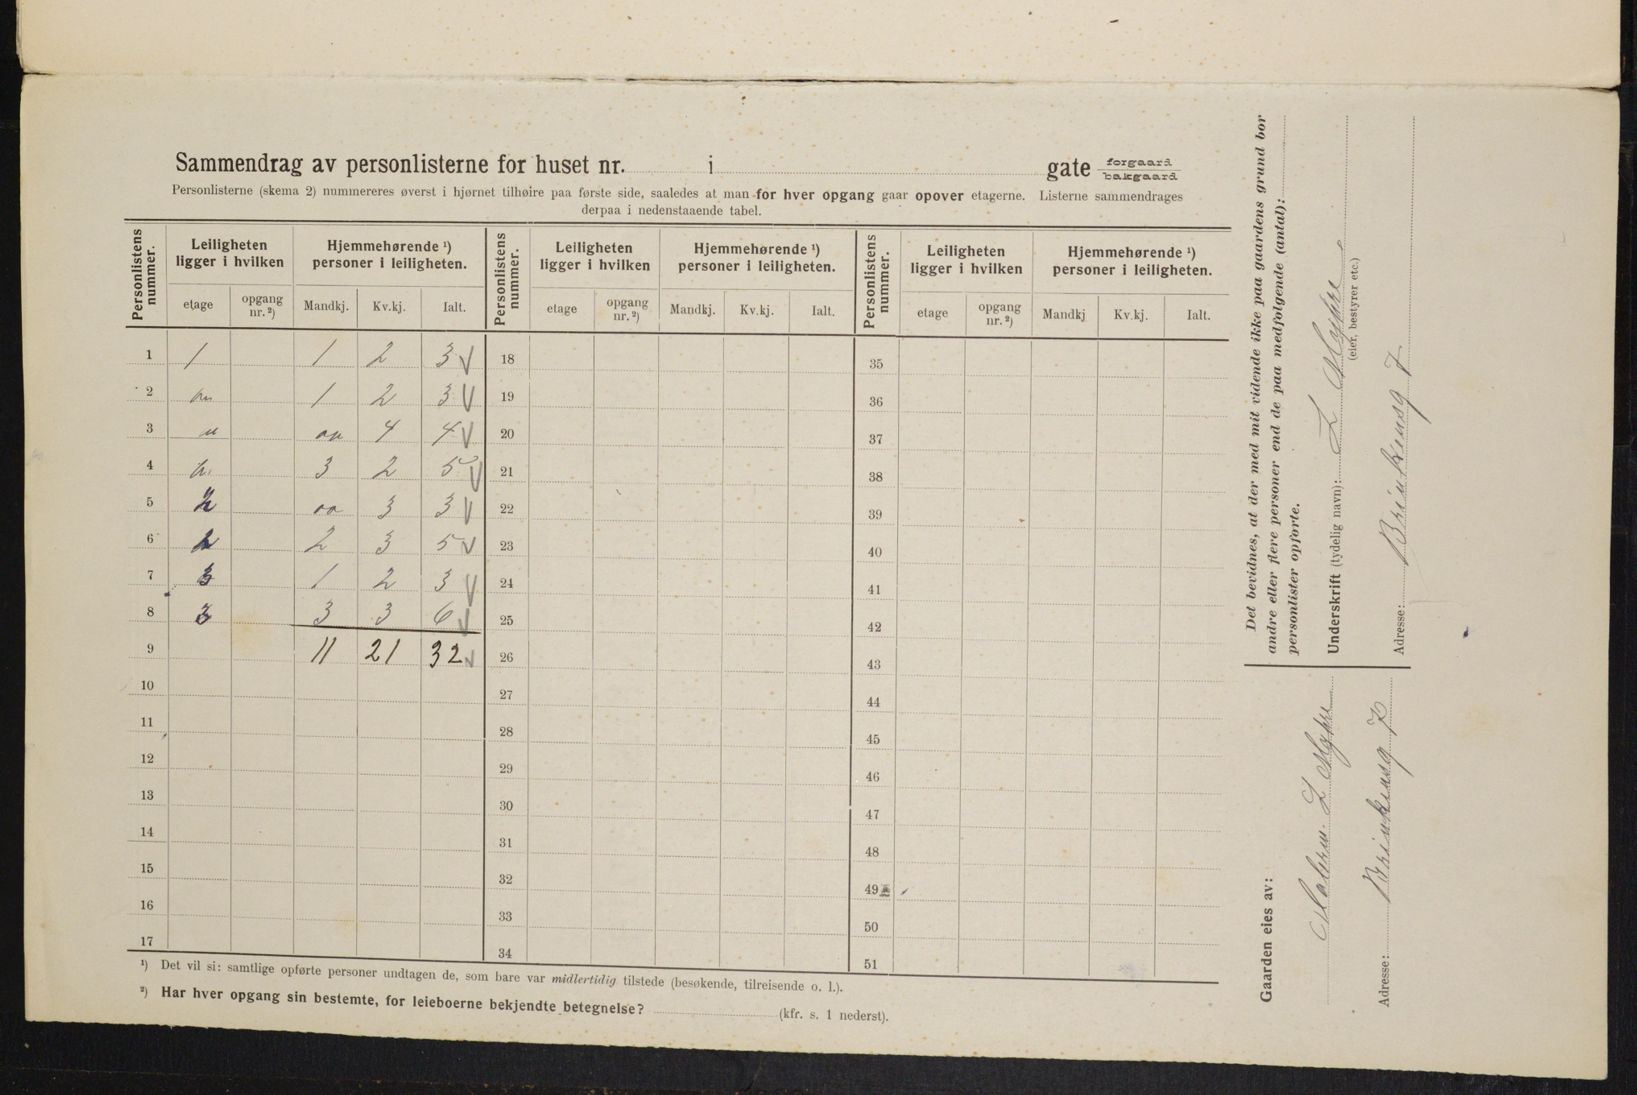 Sammendrag av personlisterne for huset nr. i gate forgaard bakgaard
Personlisterne (skema 2) nummereres øverst i hjørnet tilhøire paa første side, saaledes at man for hver opgang gaar opover etagerne. Listerne sammendrages
derpaa i nedenstaaende tabel.
Personlistens nummer. Leiligheten ligger i hvilken Hjemmehørende ¹) personer i leiligheten. Personlistens nummer. Leiligheten ligger i hvilken Hjemmehørende ¹) personer i leiligheten. Personlistens nummer. Leiligheten ligger i hvilken Hjemmehørende ¹) personer i leiligheten.
etage opgang nr. ²) Mandkj. Kv.kj. Ialt. etage opgang nr. ²) Mandkj. Kv.kj. Ialt. etage opgang nr. ²) Mandkj Kv.kj. Ialt.
1 1 1 2 3 18 35
2 1 2 3 19 36
3 " oo 4 4 20 37
4 3 2 5 21 38
5 2 oo 3 3 22 39
6 2 2 3 5 23 40
7 3 1 2 3 24 41
8 3 3 3 6 25 42
9 11 21 32 26 43
10 27 44
11 28 45
12 29 46
13 30 47
14 31 48
15 32 49
16 33 50
17 34 51
¹) Det vil si: samtlige opførte personer undtagen de, som bare var midlertidig tilstede (besøkende, tilreisende o. l.).
²) Har hver opgang sin bestemte, for leieboerne bekjendte betegnelse? (kfr. s. 1 nederst).
Det bevidnes, at der med mit vidende ikke paa gaardens grund bor
andre eller flere personer end de paa medfølgende (antal):
personlister opførte.
Underskrift (tydelig navn): L
(eier, bestyrer etc.)
Adresse: Brinkensg 7
Gaarden eies av:
L
Adresse: Brinkensg 7